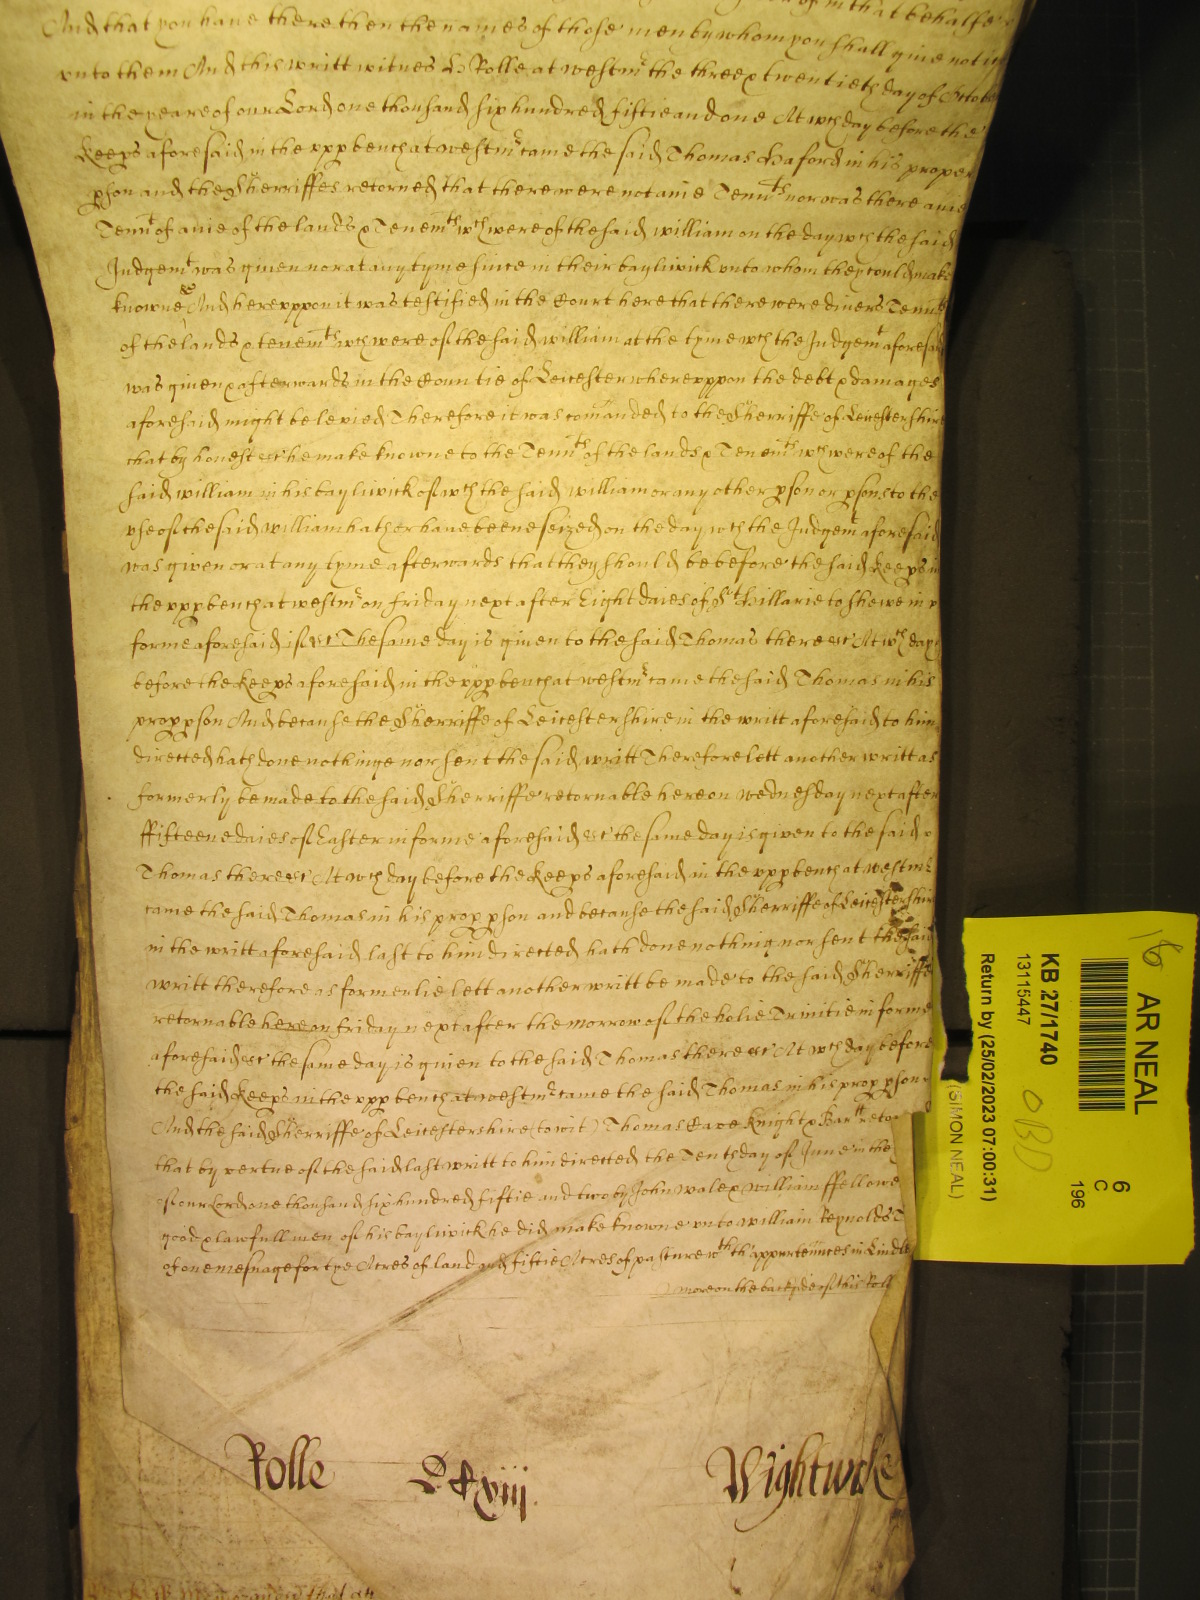 in that behalfe
And that you have there then the names of those men by whom you shall give notice
unto them And this writt witnes H Rolle at westmr the three & twentieth day of Octob
in the yeare of our Lord one thousand six hundred fiftie and one At wch day before the
Keeps aforesaid in the upp bench at westmr came the said Thomas in his proper
pson and the Sherriffes retorned that there were not anie Tennts nor was there anie
Tennt of anie of the lands & Tenemts wch were of the said william on the day wch the said
Judgemt was given nor at any tyme since in their bayliwick unto whom they could make
knowne &c And hereuppon it was testified in the Court here that there were divers Tennts
of the lands & tenemts wch were of the said william at the tyme wch the Judgemt aforesaid
was given & afterwards in the Countie of Leicester whereuppon the debt & damages
aforesaid might be levied Therefore it was comanded to the Sherriffe of Leicestershire
that by honest &c he make knowne to the Tennts of the lands & Tenemts wch were of the
said william in his bayliwick of wch the said william or any other pson or psons to the
use of the said william hath or have beene seized on the day wch the Judgemt aforesaid
was given or at any tyme afterwards that they should be before the said Keeps in
the upp bench at westmr on friday next after Eight daies of St Hillarie to shewe in
forme aforesaid if &c The same day is given to the said Thomas there &c At wch day
before the Keeps aforesaid in the upp bench at westmr came the said Thomas in his
prop pson And because the Sherriffe of Leicestershire in the writt aforesaid to him
directed hath done nothinge nor sent the said writt Therefore lett another writt as
formerly be made to the said Sherriffe retornable here on wednesday next after
ffifteene daies of Easter in forme aforesaid &c the same day is given to the said
Thomas there &c At wch day before the Keeps aforesaid in the upp bench at westmr
came the said Thomas in his prop pson and because the said Sherriffe of Leicestershire
in the writt aforesaid last to him directed hath done nothing nor sent the said
writt therefore as formerlie lett another writt be made to the said Sherriffe
retornable here on friday next after the morrow of the holie Trinitie in forme
aforesaid &c the same day is given to the said Thomas there &c At wch day before
the said Keeps in the upp bench at westmr came the said Thomas in his prop pson
And the said Sherriffe of Leicestershire (to wit) Thomas Cave Knight & Bartt retor
that by vertue of the said last writt to him directed the Tenth day of June in the
of our Lord one thousand six hundred fiftie and two by John wale & william ffellowe
good & lawfull men of his bayliwick he did make knowne unto william Reynolds T
of one mesuage fortye Acres of land and fiftie Acres of pasture wth th'appurtennces in
more on the backside of this Roll
Rolle
xviij
Wightwicke
16
AR NEAL
KB 27/1740
13115447
Return by (25/02/2023 07:00:31)
(SIMON NEAL)
OBD
6
C
196